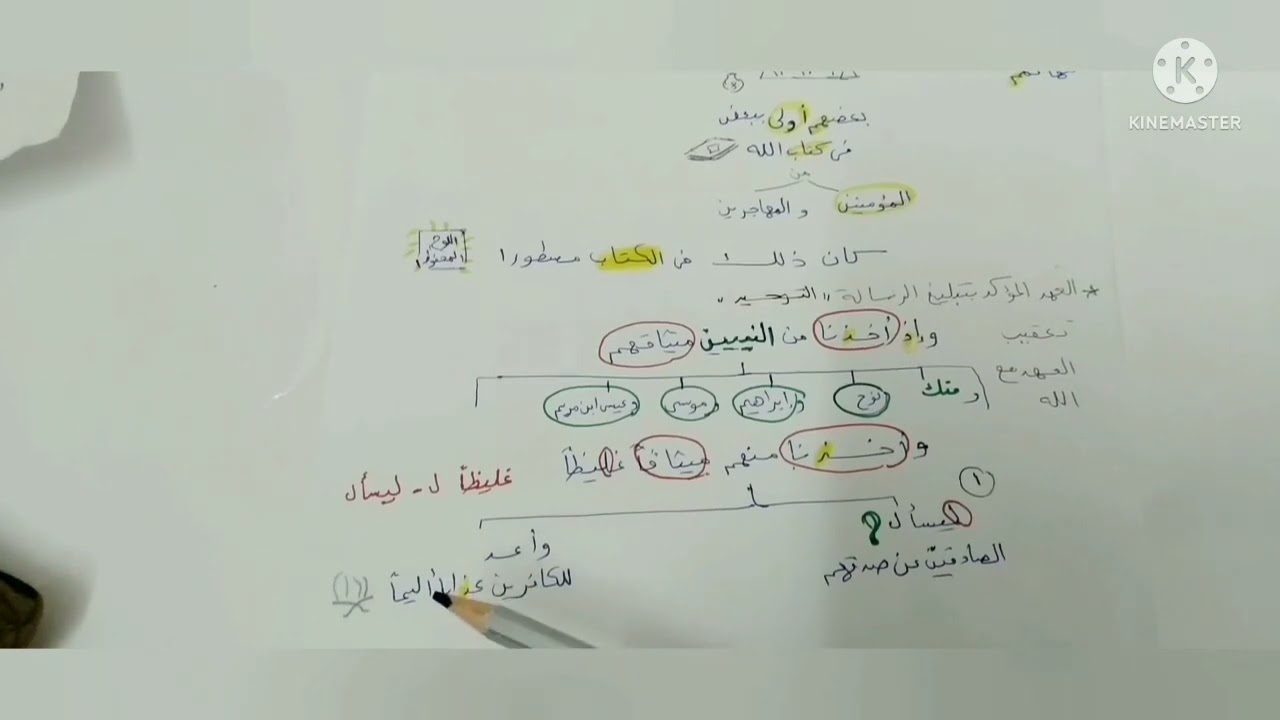 KINEMASTER
بعضهم أولى ببعض
فى كتاب الله
من
المؤمنين والمهاجرين
كان ذلك فى الكتاب مسطورا
اللوح المحفوظ
* العهد المؤكد بتبليغ الرسالة "التوحيد"
تعقيب
وإذ أخذنا من النبيين ميثاقهم
العهد مع الله
ومنك نوح وإبراهيم وموسى وعيسى ابن مريم
وأخذنا منهم ميثاقاً غليظاً
غليظاً ل - ليسأل
١
ليسأل
الصادقين عن صدقهم
وأعد
للكافرين عذاباً أليماً